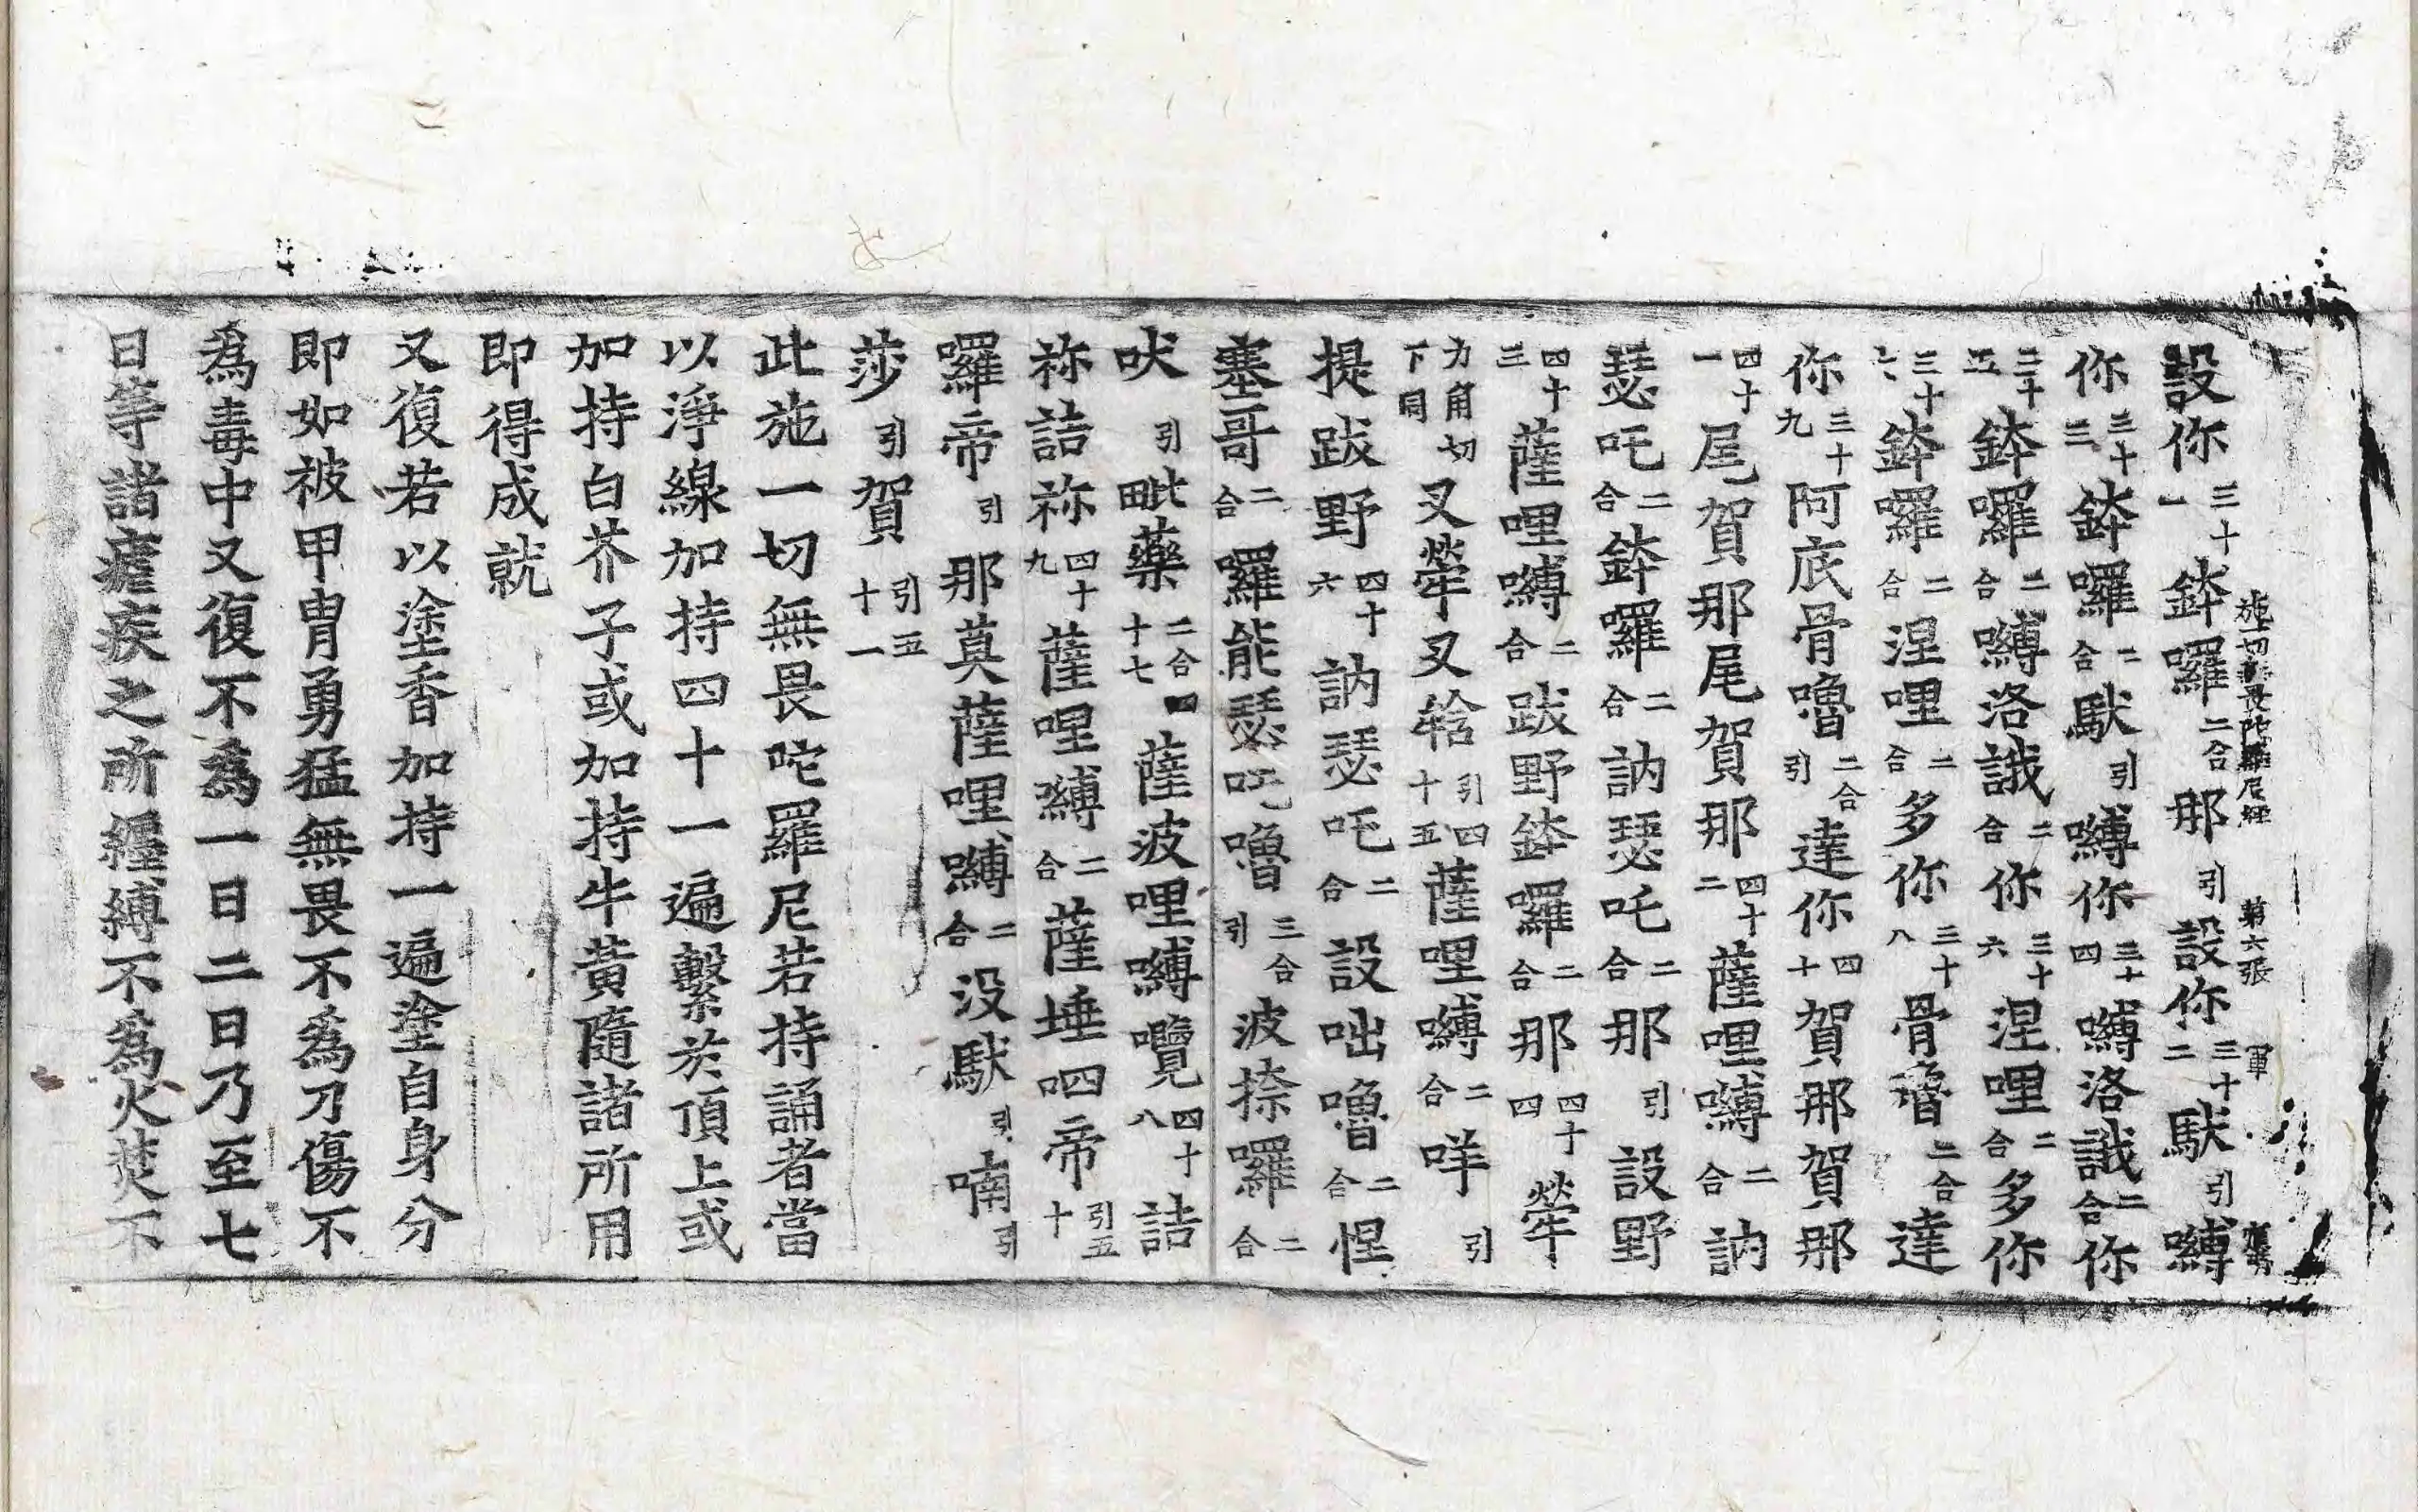 施一切無畏陀羅尼經 第六張 軍
設你三十一鉢囉二合那引設你三十二馱引嚩
你三十三鉢囉二合馱引嚩你三十四嚩洛誐二合你
三十五鉢囉二合嚩洛誐二合你三十六涅哩二合多你
三十七鉢囉二合涅哩二合多你三十八骨嚕二合達
你三十九阿底骨嚕二合引達你四十賀那賀那
四十一尾賀那尾賀那四十二薩哩嚩二合訥
瑟吒二合鉢囉二合訥瑟吒二合那引設野
四十三薩哩嚩二合跋野鉢囉二合那四十四犖
力角切下同叉犖叉𤚥引四十五薩哩嚩二合咩引
提跋野四十六訥瑟吒二合設咄嚕二合悍
塞哥二合囉能瑟吒嚕三合引波捺囉二合
吠引毗藥二合四十七薩波哩嚩囕四十八詰
祢詰祢四十九薩哩嚩二合薩埵呬帝引五十
囉帝引那莫薩哩嚩二合沒馱引喃引
莎引賀引五十一
此施一切無畏陀羅尼若持誦者當
以淨線加持四十一遍繫於頂上或
加持白芥子或加持牛黃隨諸所用
即得成就
又復若以塗香加持一遍塗自身分
即如被甲冑勇猛無畏不為刀傷不
為毒中又復不為一日二日乃至七
日等諸瘧疾之所纏縛不為火焚不